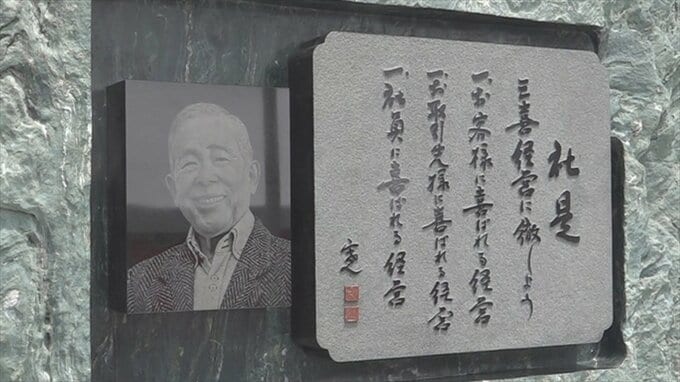 社是
三喜経営に徹しよう
一、お客様に喜ばれる経営
一、お取引先様に喜ばれる経営
一、社員に喜ばれる経営